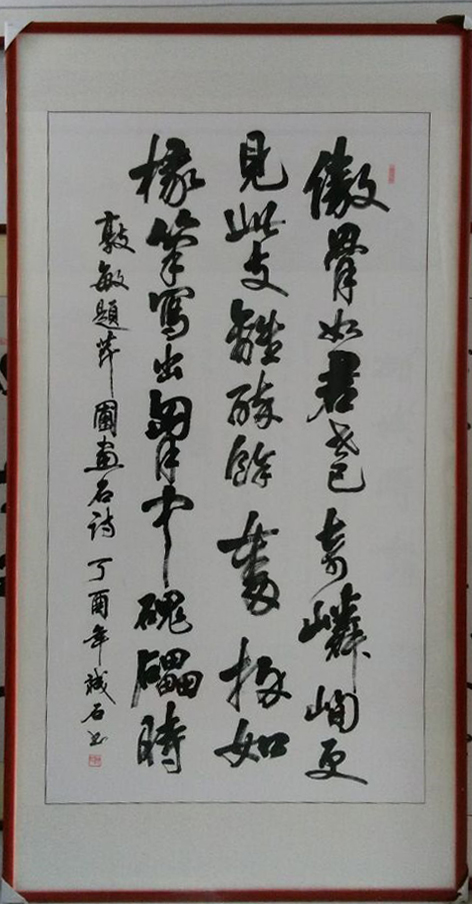 傲骨如君世已奇嶙峋更
見此支離醉餘奮掃如
椽筆寫出胷中磈礧時
敦敏題芹圃畫石詩 丁酉年誠石书